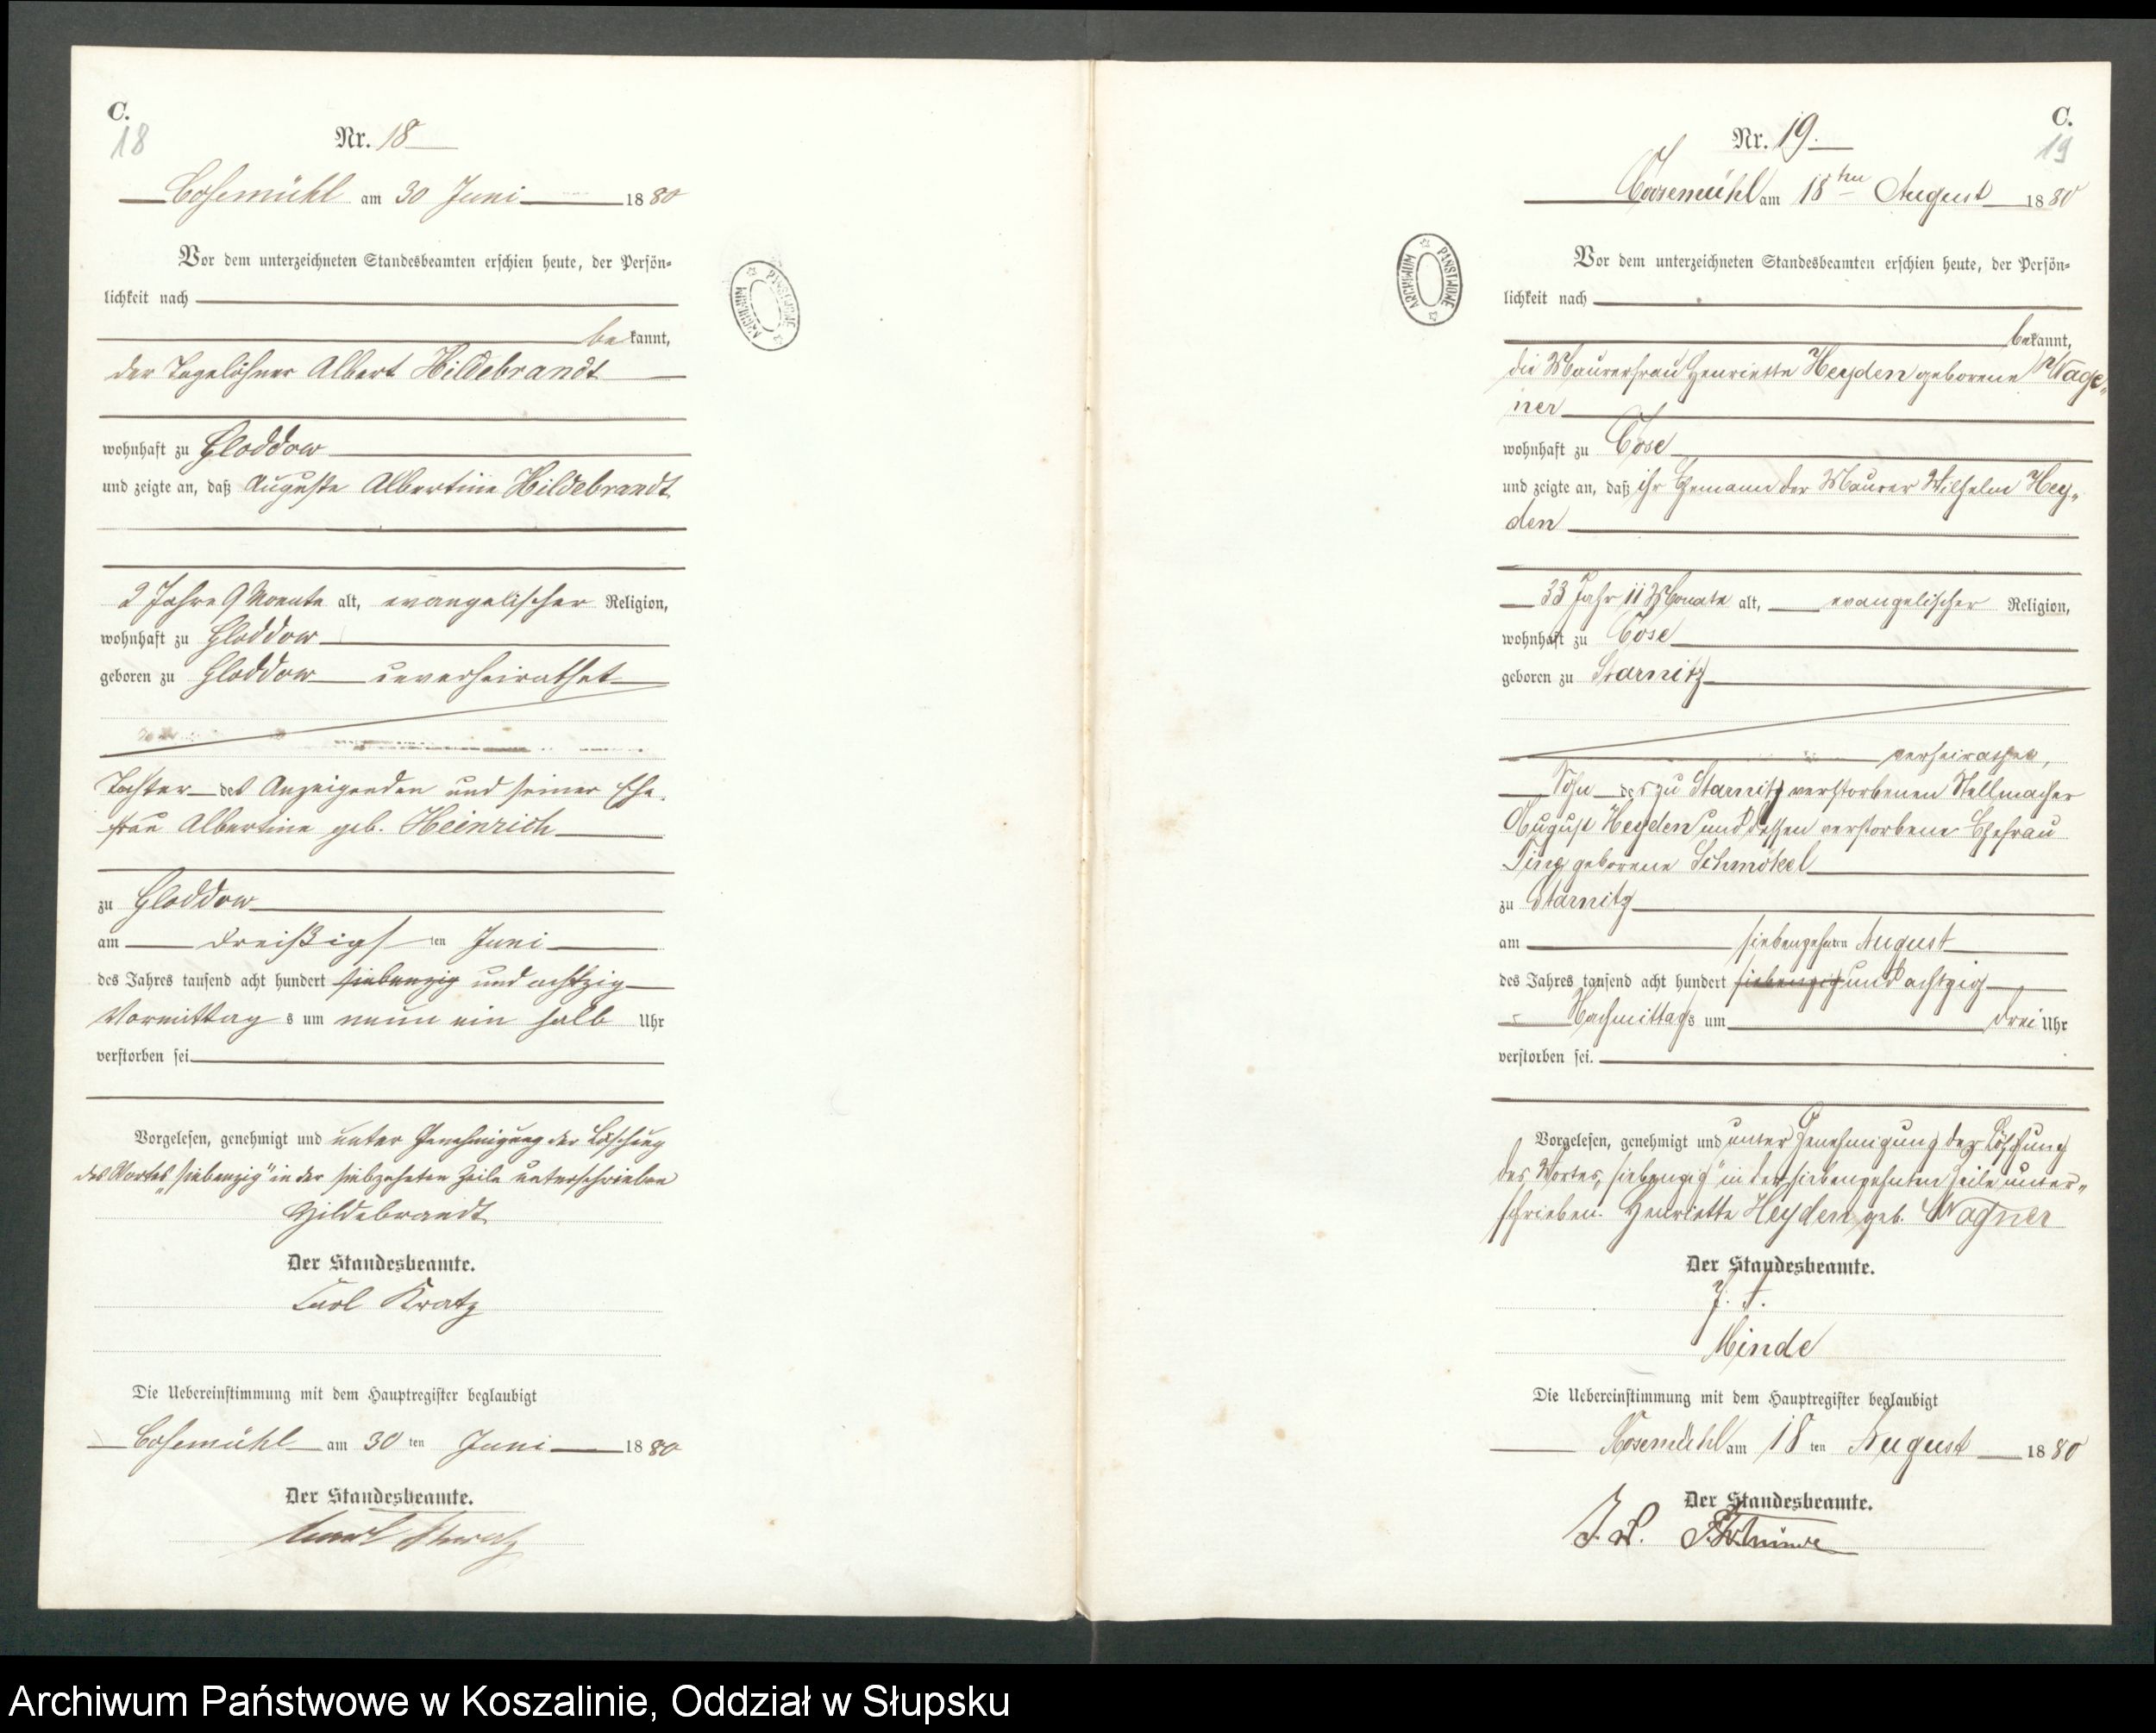 C.
18
Nr. 18
Cosemühl am 30 Juni 1880
Vor dem unterzeichneten Standesbeamten erschien heute, der Persön-
lichkeit nach
bekannt,
der Tagelöhner Albert Hildebrandt
wohnhaft zu Gloddow
und zeigte an, daß Auguste Albertine Hildebrandt
2 Jahre 9 Monate alt, evangelischer Religion,
wohnhaft zu Gloddow
geboren zu Gloddow unverheirathet
Tochter des Anzeigenden und seiner Ehe-
frau Albertine geb. Heinrich
zu Gloddow
am dreißigsten Juni
des Jahres tausend acht hundert siebenzig und achtzig
Vormittags um neun ein halb Uhr
verstorben sei
Vorgelesen, genehmigt und unter Genehmigung der Löschung
des Wortes „siebenzig" in der siebzehnten Zeile unterschrieben
Hildebrandt
Der Standesbeamte.
Carl Kratz
Die Uebereinstimmung mit dem Hauptregister beglaubigt
Cosemühl am 30ten Juni 1880
Der Standesbeamte.
Carl Kratz
ARCHIWUM PAŃSTWOWE
C.
19
Nr. 19.
Coosemühl am 18ten August 1880
Vor dem unterzeichneten Standesbeamten erschien heute, der Persön-
lichkeit nach
bekannt,
die Maurerfrau Henriette Heyden geborene Wage„
ner
wohnhaft zu Cose
und zeigte an, daß ihr Ehemann der Maurer Wilhelm Hey„
den
33 Jahr 11 Monate alt, evangelischer Religion,
wohnhaft zu Cose
geboren zu Starnitz
verheirathet,
Sohn des zu Starnitz verstorbenen Stellmacher
August Heyden und dessen verstorbene Ehefrau
geborene Schmökel
zu Starnitz
am siebenzehnten August
des Jahres tausend acht hundert siebenzig und achtzig
Nachmittags um drei Uhr
verstorben sei.
Vorgelesen, genehmigt und unter Genehmigung der Löschung
des Wortes „siebenzig" in der siebenzehnten Zeile unter„
schrieben. Henriette Heyden geb. Wagner
Der Standesbeamte.
Minde
Die Uebereinstimmung mit dem Hauptregister beglaubigt
Kosemühl am 18ten August 1880
Der Standesbeamte.
ARCHIWUM PAŃSTWOWE
Archiwum Państwowe w Koszalinie, Oddział w Słupsku